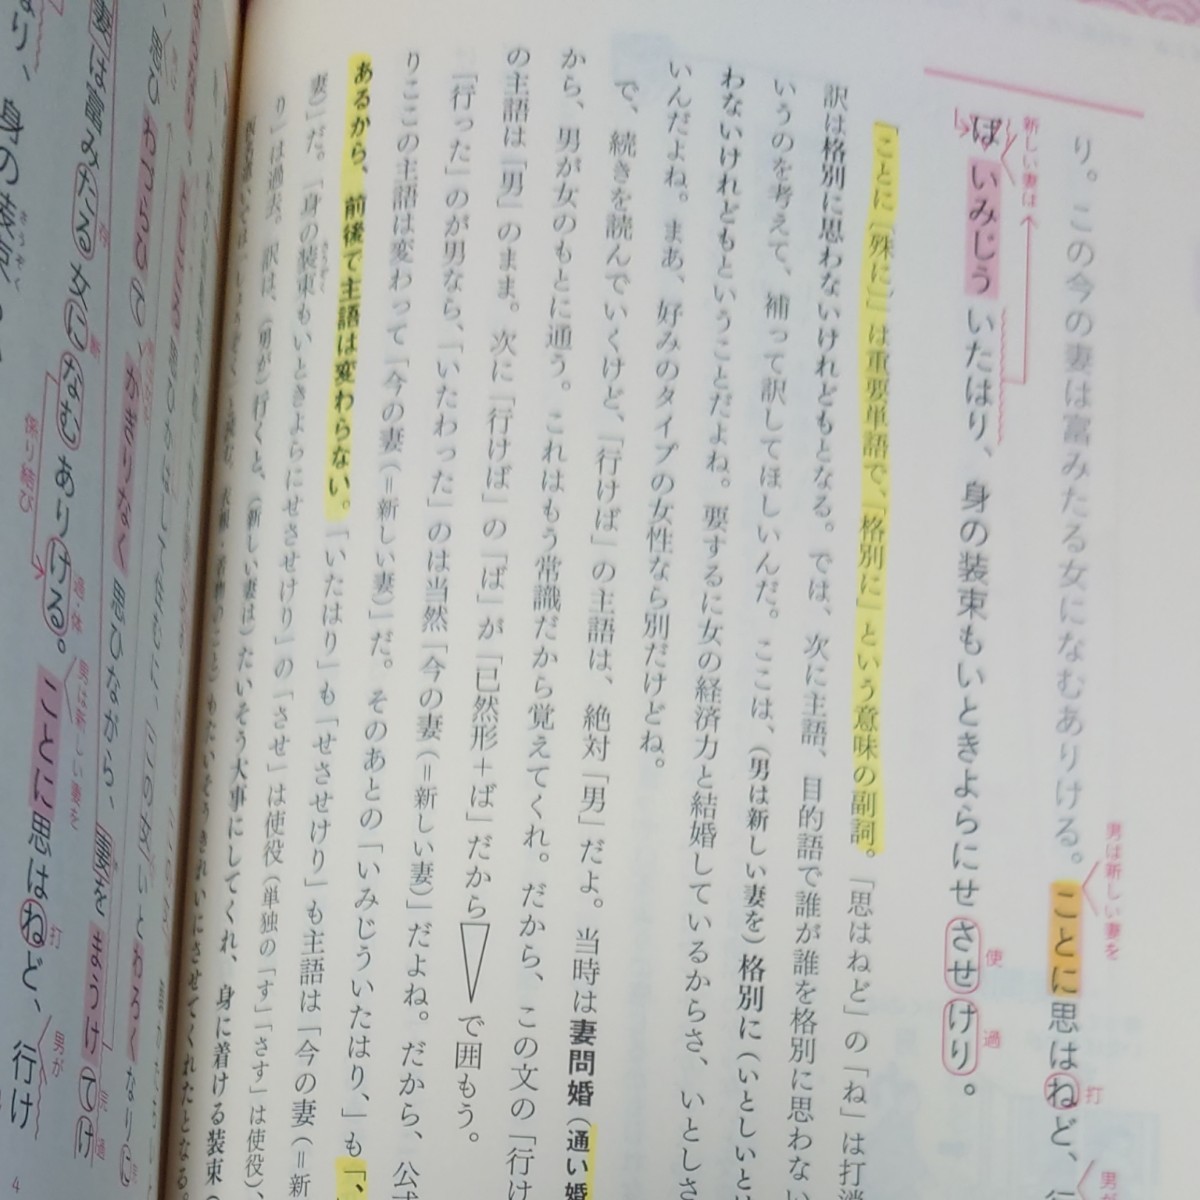 り。この今の妻は富みたる女になむありける。ことに思はねど、
男は新しい妻を
打
男
新しい妻は
ばいみじういたはり、身の装束もいときよらにせさせけり。
使
過
「ことに〔殊に〕」は重要単語で、「格別に」という意味の副詞。「思はねど」の「ね」は打消
訳は格別に思わないけれどもとなる。では、次に主語、目的語で誰が誰を格別に思わない
いうのを考えて、補って訳してほしいんだ。ここは、(男は新しい妻を)格別に(いとしいと
わないけれどもということだよね。要するに女の経済力と結婚しているからさ、いとしさ
いんだよね。まあ、好みのタイプの女性なら別だけどね。
で、続きを読んでいくけど、「行けば」の主語は、絶対「男」だよ。当時は妻問婚(通い婚
から、男が女のもとに通う。これはもう常識だから覚えてくれ。だから、この文の「行け
の主語は「男」のまま。次に「行けば」の「ば」が「已然形+ば」だから▽で囲もう。
「行った」のが男なら、「いたわった」のは当然「今の妻(=新しい妻)」だよね。だから、公式
りここの主語は変わって「今の妻(=新しい妻)」だ。そのあとの「いみじういたはり、」も「、
あるから、前後で主語は変わらない。「いたはり」も「せさせけり」も主語は「今の妻(=新
妻)」だ。「身の装束もいときよらにせさせけり」の「させ」は使役(単独の「す」「さす」は使役)、
さうぞく
り」は過去。訳は、(男が)行くと、(新しい妻は)たいそう大事にしてくれ、身に着ける装束(
もたいそうきれいにさせてくれたとなる。
わろくなりに
かぎりなく思ひながら、妻をまうけてけ
妻は富みたる女になむありける。ことに思はねど、行け
存
断
係り結び
過・体
男は新しい妻を
打
男が
さうぞく
身の装束
4